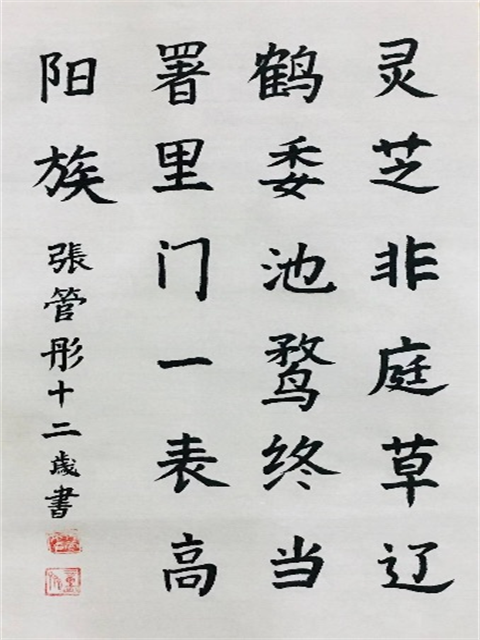 灵芝非庭草辽
鹤委池鹜终当
署里门一表高
阳族
張管彤十二歲書